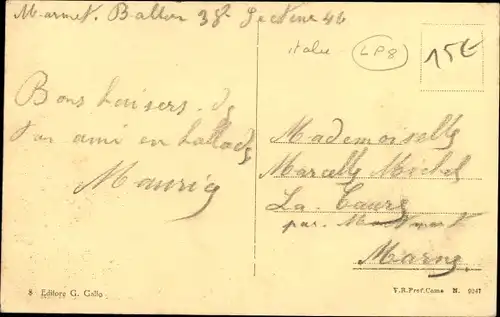 Marmet. Ballon 38e Section 42
italie
LP8
15€
Bons baisers de
ton ami en
Maurice
Mademoiselle
Marcelle Michel
La Caure
par. Montmort
Marne
8 Editore G. Gallo
V.R.Pref.Como N. 9247